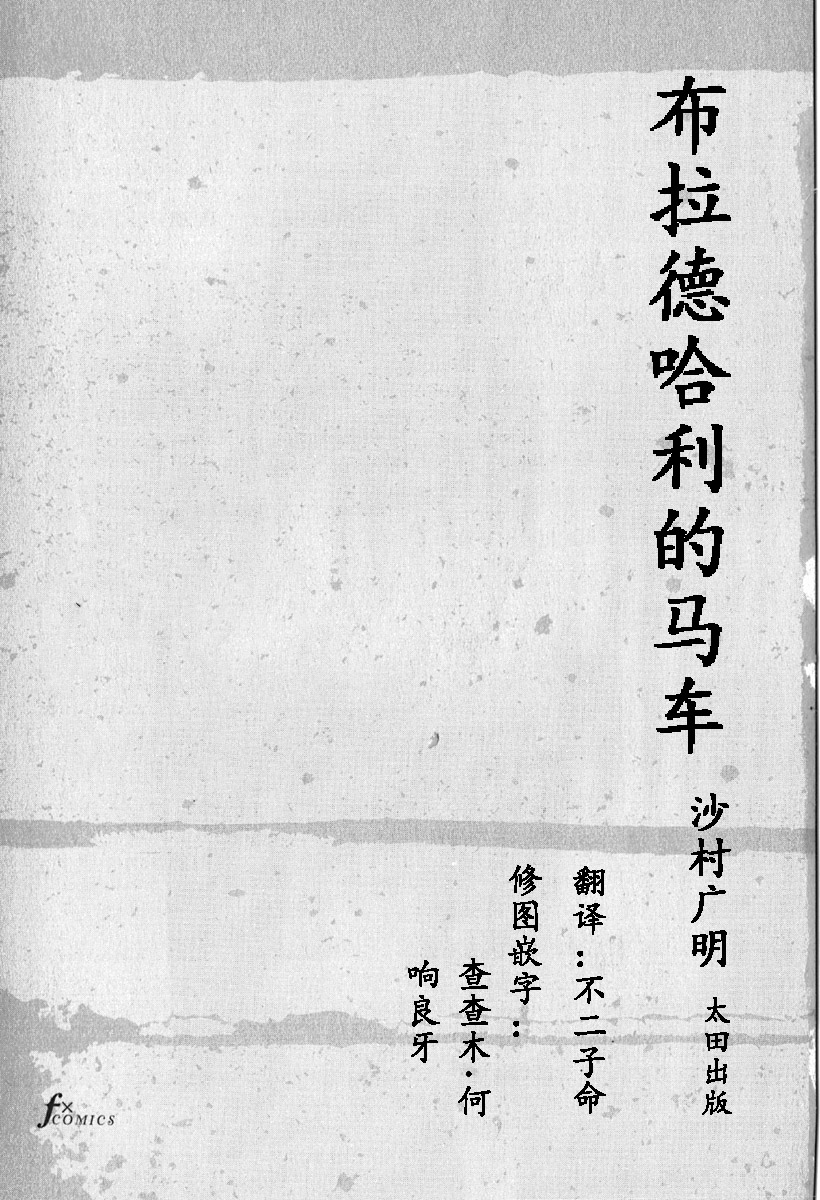 布拉德哈利的马车
沙村广明
太田出版
翻译：不二子命
修图嵌字：
查查木·何
响良牙
fx COMICS